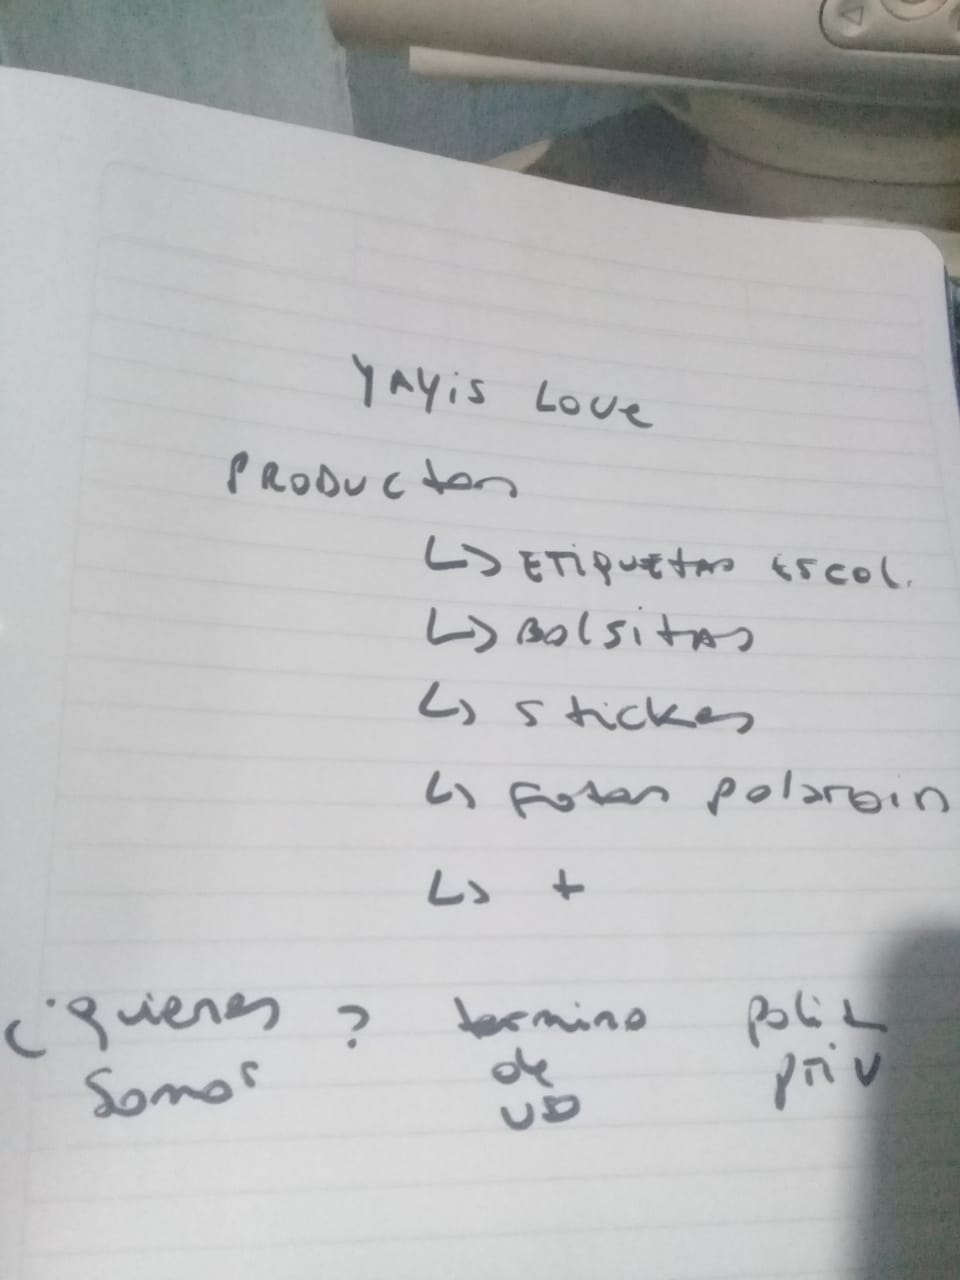 YAYis Love
PRODUctos
↳ ETiquEtAs Escol.
↳ BolsitAs
↳ stickes
↳ Fotos polaroin
↳ +
¿quienes somos?
termino de uso
polit priv